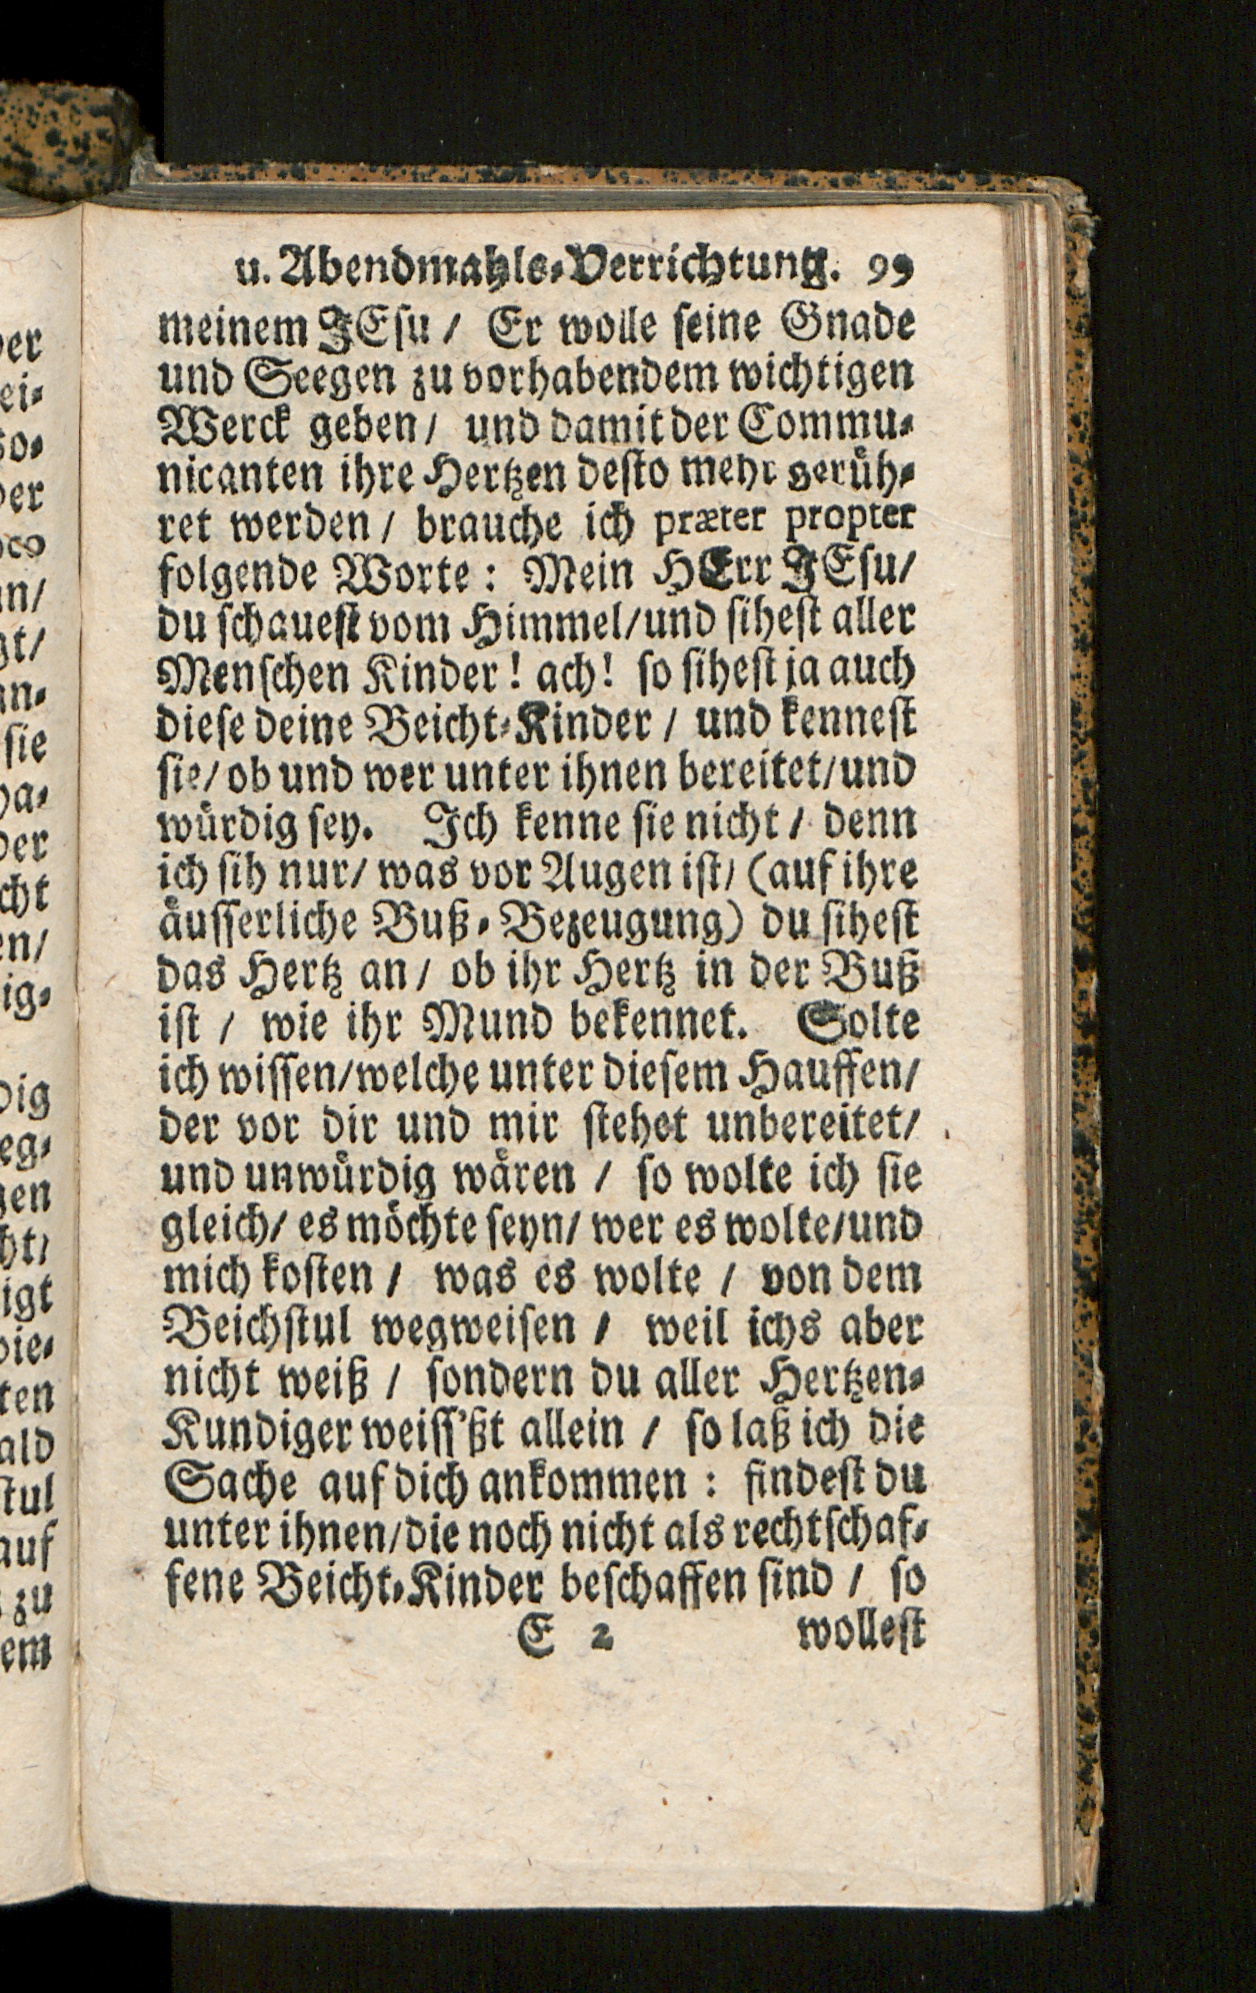 u. Abendmahls-Verrichtung. 99
meinem JEsu / Er wolle seine Gnade
und Seegen zu vorhabendem wichtigen
Werck geben / und damit der Commu-
nicanten ihre Hertzen desto mehr gerüh-
ret werden / brauche ich præter propter
folgende Worte: Mein HErr JEsu/
du schauest vom Himmel/und sihest aller
Menschen Kinder! ach! so sihest ja auch
diese deine Beicht-Kinder / und kennest
sie/ ob und wer unter ihnen bereitet/und
würdig sey. Ich kenne sie nicht / denn
ich sih nur/ was vor Augen ist/ (auf ihre
äusserliche Buß-Bezeugung) du sihest
das Hertz an/ ob ihr Hertz in der Buß
ist / wie ihr Mund bekennet. Solte
ich wissen/welche unter diesem Hauffen/
der vor dir und mir stehet unbereitet/
und unwürdig wären / so wolte ich sie
gleich/ es möchte seyn/ wer es wolte/und
mich kosten / was es wolte / von dem
Beichstul wegweisen / weil ichs aber
nicht weiß / sondern du aller Hertzen-
Kundiger weiss'ßt allein / so laß ich die
Sache auf dich ankommen: findest du
unter ihnen/die noch nicht als rechtschaf-
fene Beicht-Kinder beschaffen sind / so
E 2 wollest